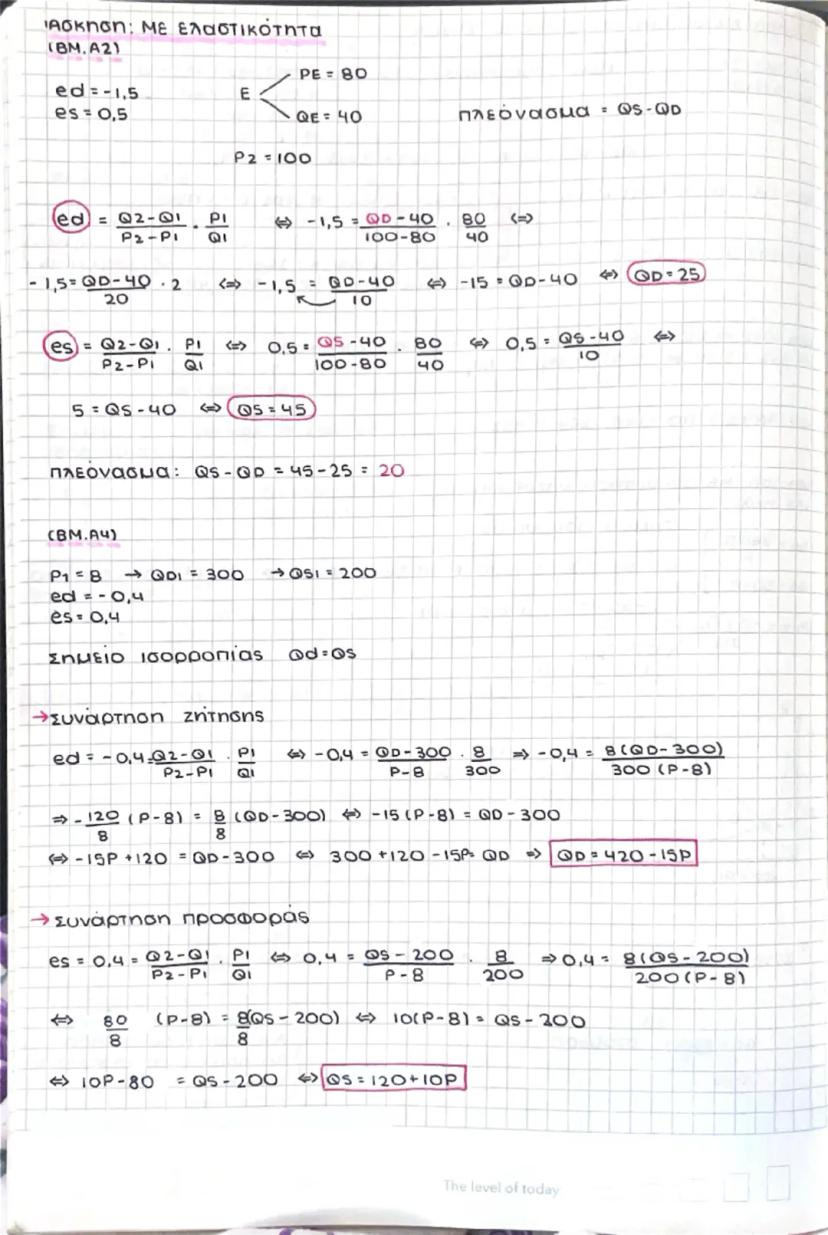 Άσκηση: ΜΕ ΕλαστικότητΑ
(ΒΜ.Α2)
ed = -1,5
es = 0,5
E < PE = 80
QE = 40
πλεόνασμα = QS-QD
P2 = 100
ed = Q2-Q1/P2-P1 · P1/Q1 ⇔ -1,5 = QD-40/100-80 · 80/40 ⇔
-1,5 = QD-40/20 · 2 ⇔ -1,5 = QD-40/10 ⇔ -15 = QD-40 ⇔ QD=25
es = Q2-Q1/P2-P1 · P1/Q1 ⇔ 0,5 = QS-40/100-80 · 80/40 ⇔ 0,5 = QS-40/10 ⇔
5 = QS-40 ⇔ QS=45
πλεόνασμα: QS-QD = 45-25 = 20
(ΒΜ.Α4)
P1 = 8 → QD1 = 300 → QS1 = 200
ed = -0,4
es = 0,4
Σημείο ισορροπίας Qd=QS
→Συνάρτηση ζήτησης
ed = -0,4 = Q2-Q1/P2-P1 · P1/Q1 ⇔ -0,4 = QD-300/P-8 · 8/300 ⇒ -0,4 = 8(QD-300)/300(P-8)
⇒ -120/8 (P-8) = 8/8 (QD-300) ⇔ -15(P-8) = QD-300
⇔ -15P+120 = QD-300 ⇔ 300+120-15P= QD ⇒ QD = 420-15P
→ Συνάρτηση προσφοράς
es = 0,4 = Q2-Q1/P2-P1 · P1/Q1 ⇔ 0,4 = QS-200/P-8 · 8/200 ⇒ 0,4 = 8(QS-200)/200(P-8)
⇔ 80/8 (P-8) = 8(QS-200)/8 ⇔ 10(P-8) = QS-200
⇔ 10P-80 = QS-200 ⇔ QS=120+10P
The level of today